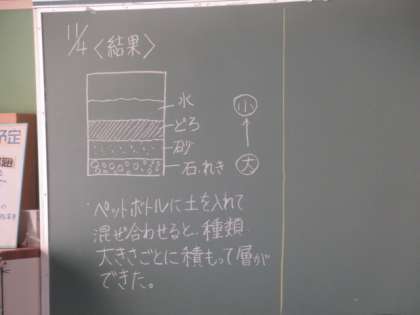 11/4 〈結果〉
水
どろ
砂
石.れき
小
大
・ペットボトルに土を入れて
混ぜ合わせると、種類、
大きさごとに積もって層が
できた。
予定